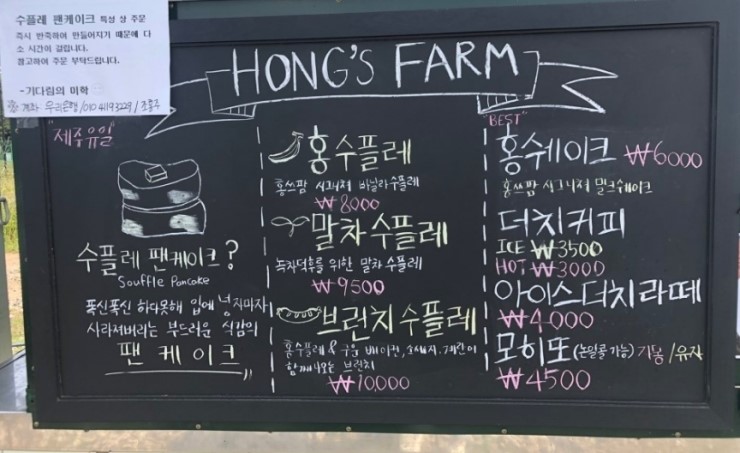 수플레 팬케이크 특성 상 주문
즉시 반죽하여 만들어지기 때문에 다
소 시간이 걸립니다.
참고하여 주문 부탁드립니다.
-기다림의 미학
계좌 우리은행 /010 4119 3229 / 조홍주
HONG'S FARM
"제주유일"
수플레 팬케이크?
Souffle Pancake
폭신폭신 하다못해 입에 넣자마자
사라져버리는 부드러운 식감의
팬케이크
홍수플레
홍쓰팜 시그니쳐 바닐라수플레
₩8000
말차수플레
녹차덕후를 위한 말차수플레
₩9500
브런치수플레
홍수플레 & 구운 베이컨, 소세지, 계란이
함께나오는 브런치
₩10,000
"BEST"
홍쉐이크 ₩6000
홍쓰팜 시그니쳐 밀크쉐이크
더치커피
ICE ₩3500
HOT ₩3000
아이스더치라떼
₩4000
모히또 (논알콜 가능) 자몽/유자
₩4500